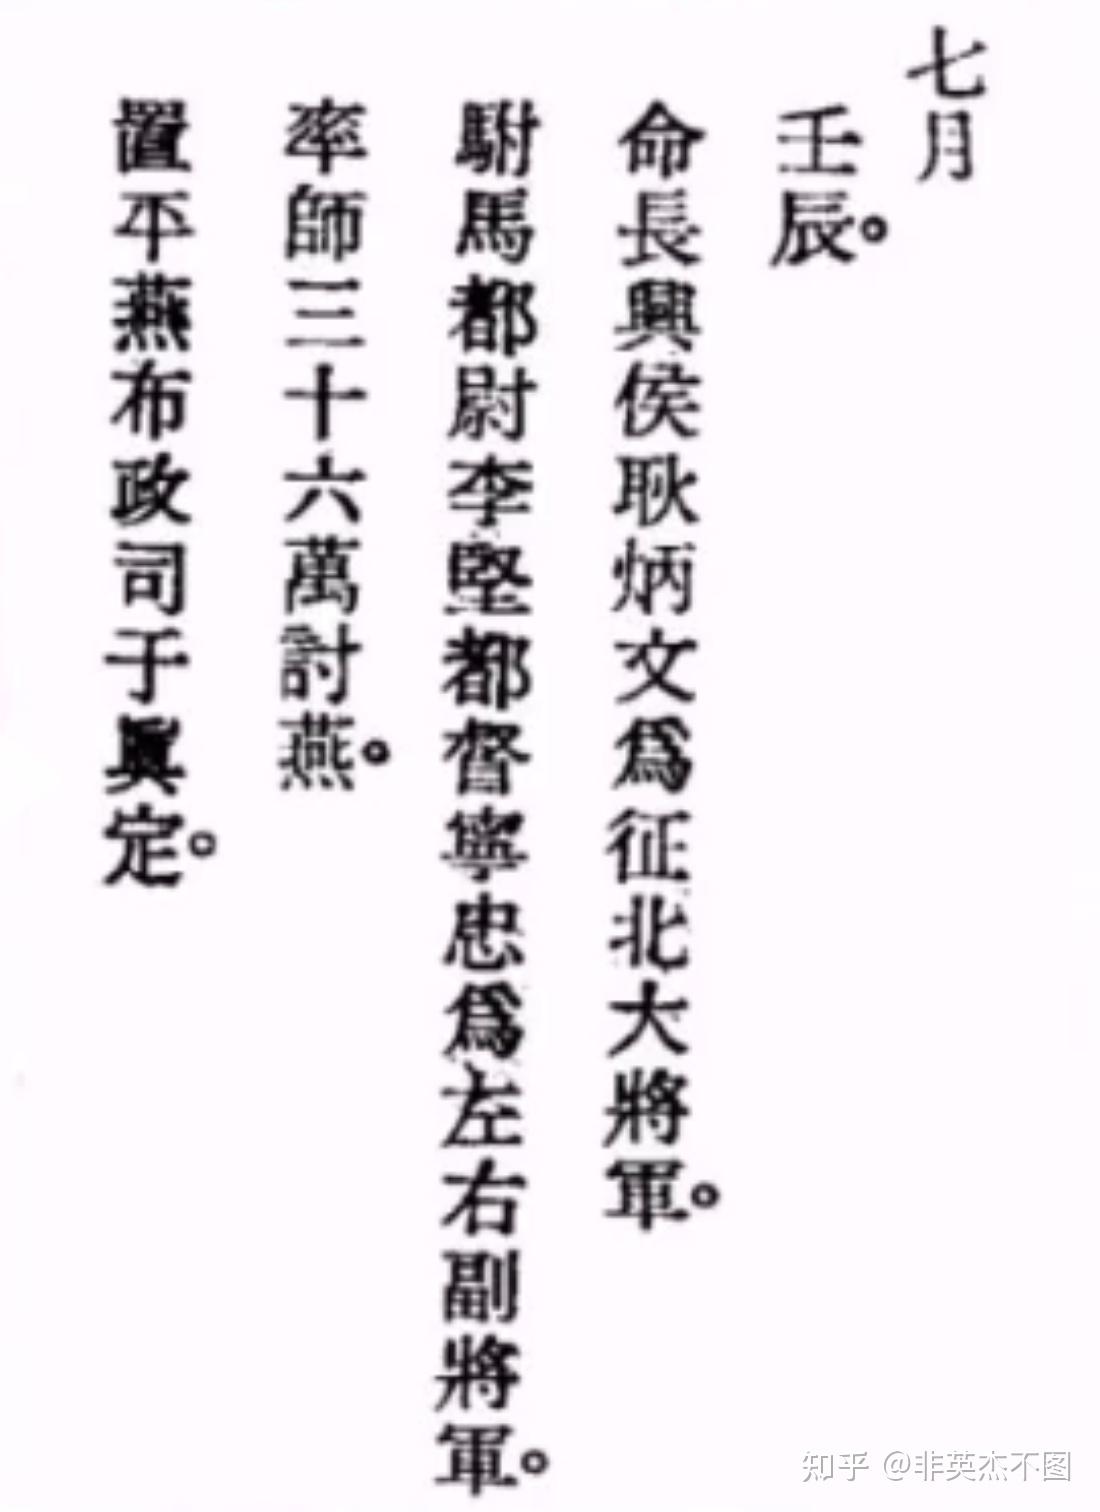 七月
壬辰。
命長興侯耿炳文爲征北大將軍。
駙馬都尉李堅都督寧忠爲左右副將軍。
率師三十六萬討燕。
置平燕布政司于眞定。
知乎 @非英杰不图